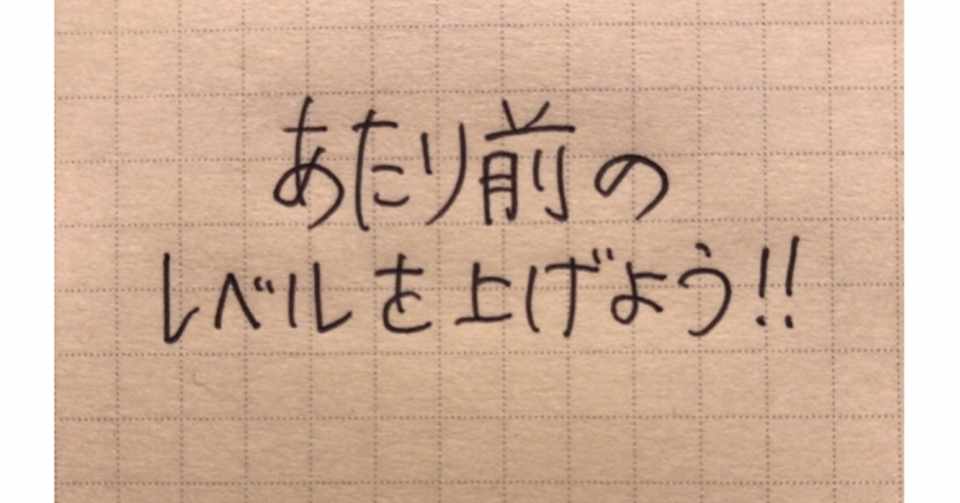 あたり前の
レベルを上げよう!!